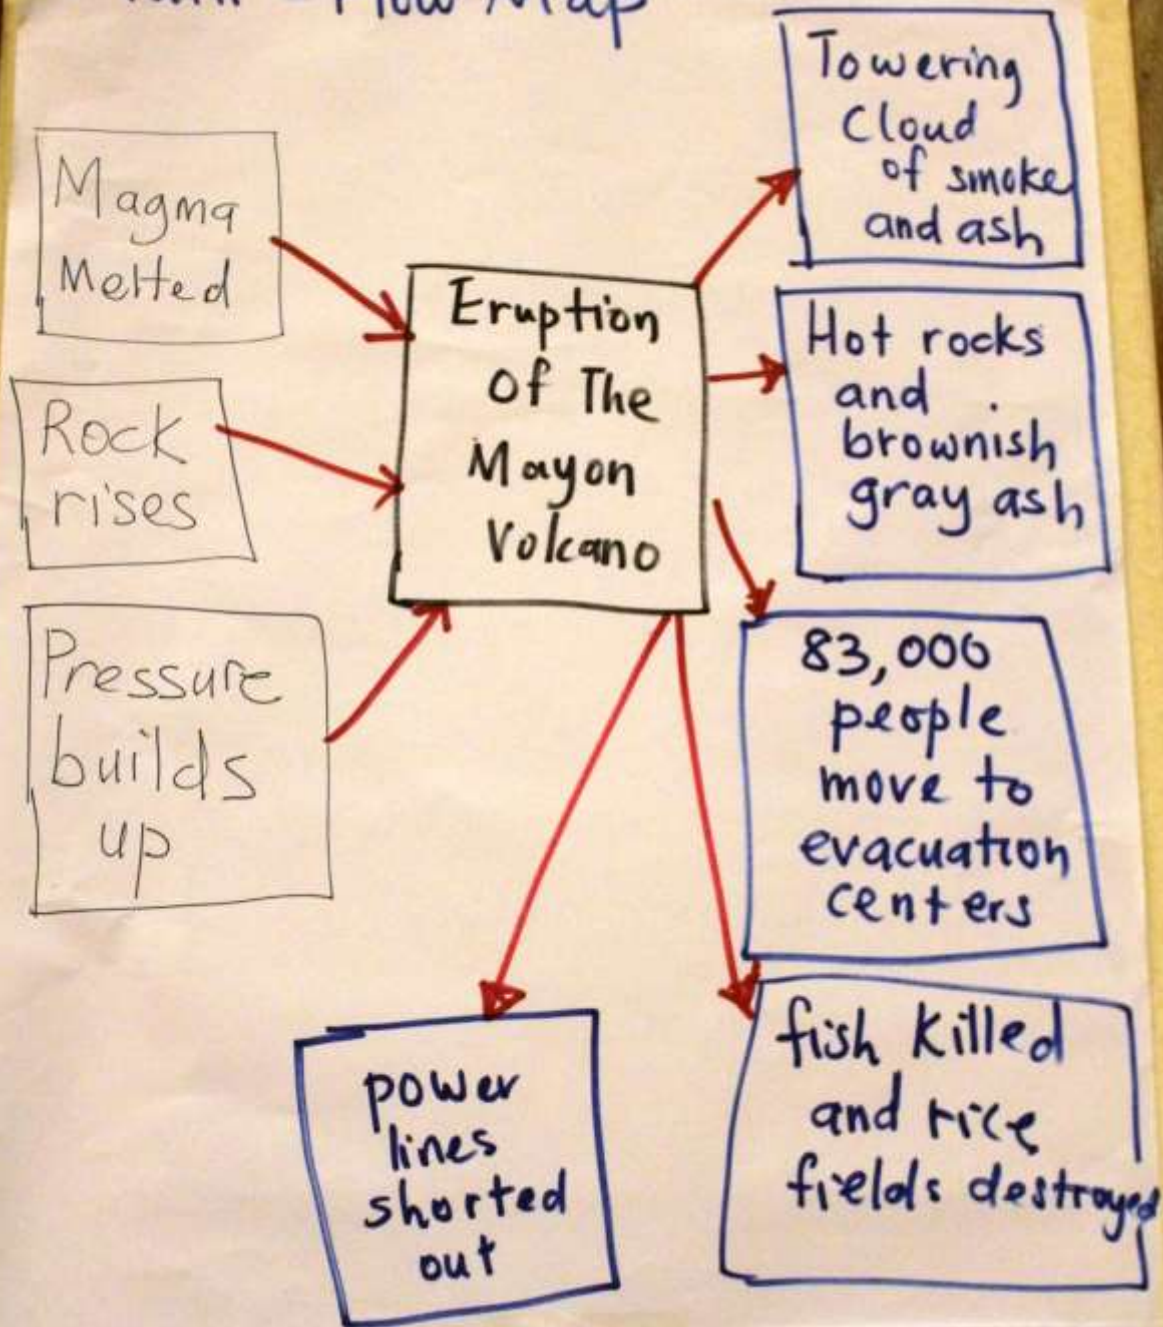 Flow Map
Magma
Melted
Rock
rises
Pressure
builds
up
Eruption
Of The
Mayon
Volcano
Towering
Cloud
of smoke
and ash
Hot rocks
and
brownish
gray ash
83,000
people
move to
evacuation
centers
fish killed
and rice
fields destroyed
power
lines
shorted
out